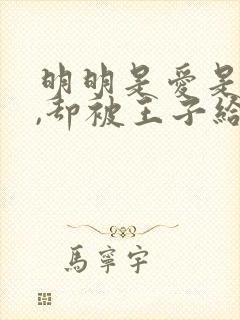 明明是愛是
,却被王子給
馬寧宇